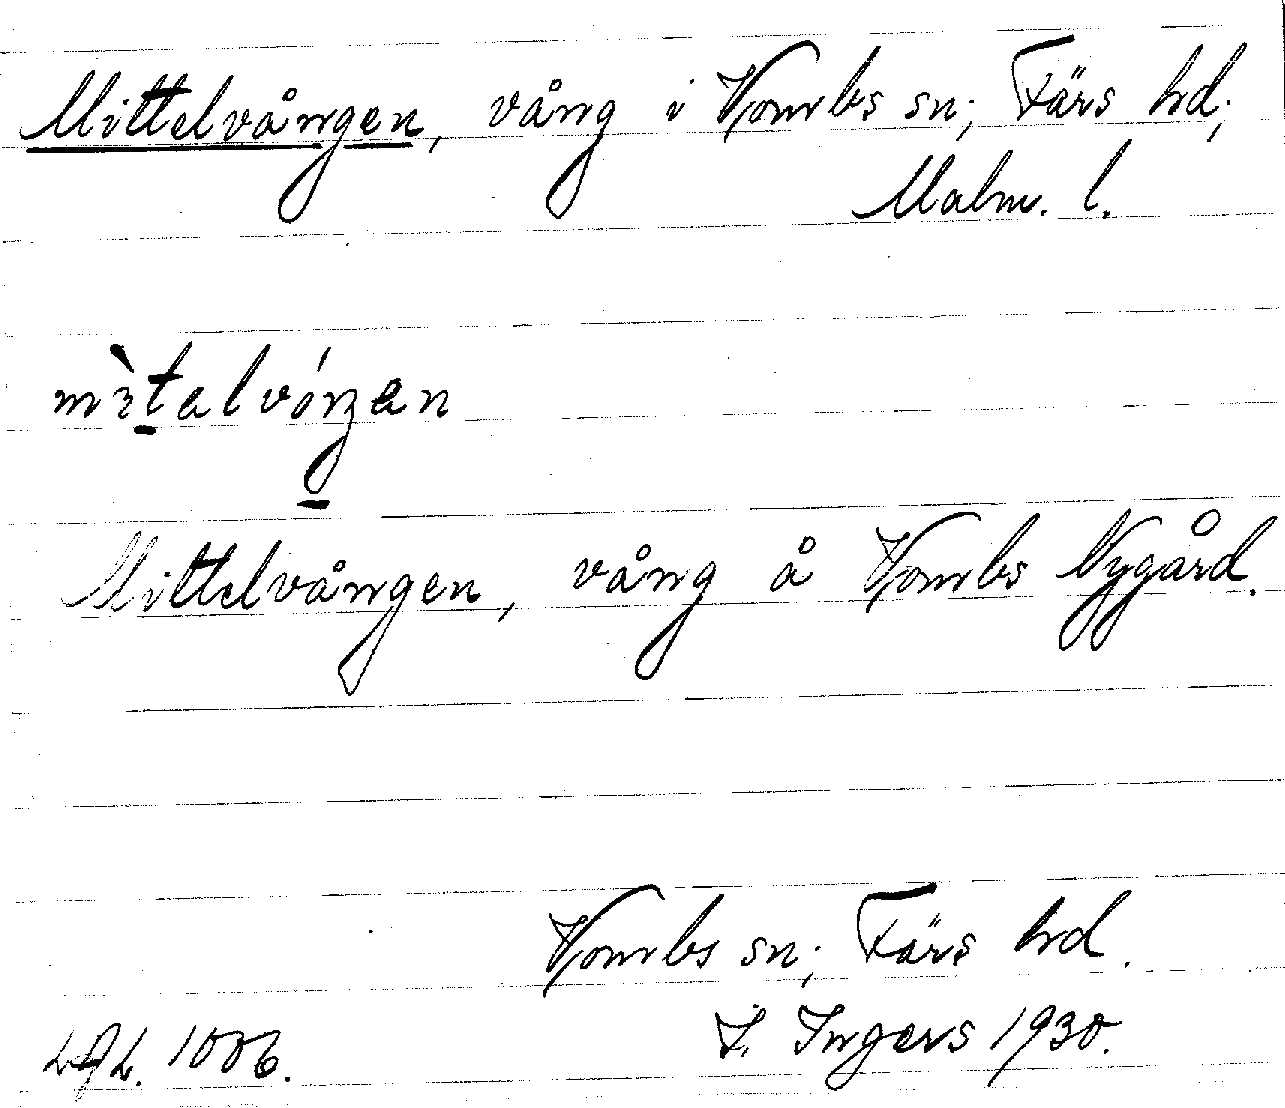 Mittelvången, vång i Vombs sn; Färs hd;
Malm. l.
mìtalvóŋan
Mittelvången, vång å Vombs Nygård.
Vombs sn; Färs hd.
I. Ingers 1930.
1006.